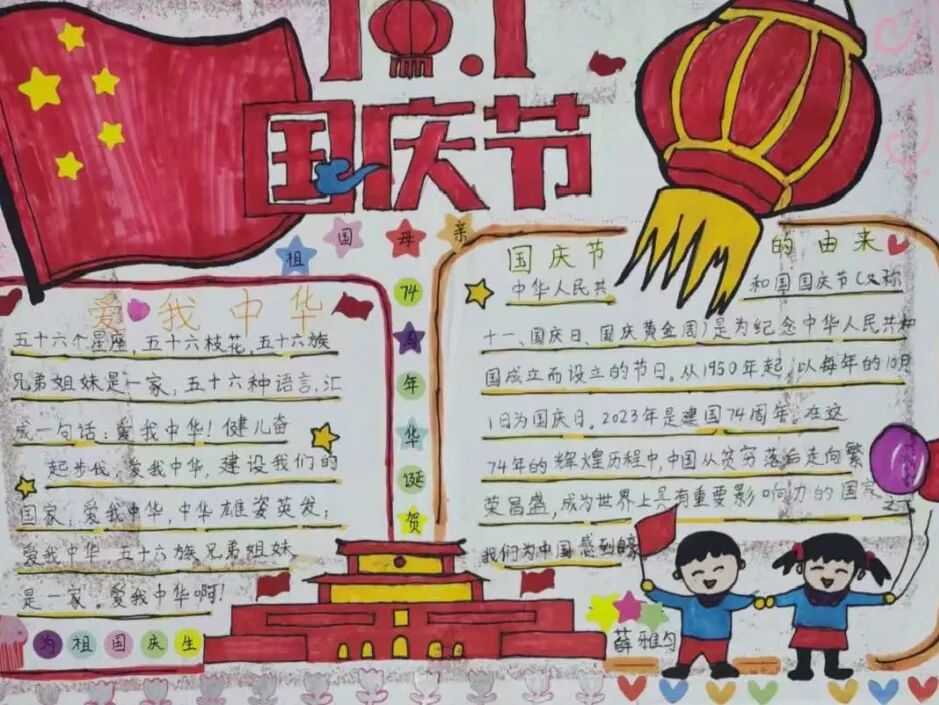 10.1
国庆节
祖国母亲
74
华
年
华
诞
贺
爱我中华
五十六个星座,五十六枝花,五十六族
兄弟姐妹是一家,五十六种语言,汇
成一句话:爱我中华!健儿奋
起步伐,爱我中华,建设我们的
国家,爱我中华,中华雄姿英发;
爱我中华 五十六族兄弟姐妹
是一家。爱我中华啊!
为祖国庆生
国庆节的由来
中华人民共和国国庆节(又称
十一、国庆日、国庆黄金周)是为纪念中华人民共和
国成立而设立的节日。从1950年起,以每年的10月
1日为国庆日。2023年是建国74周年。在这
74年的辉煌历程中,中国从贫穷落后走向繁
荣昌盛,成为世界上具有重要影响力的国家
我们为中国感到自豪
薛雅匀